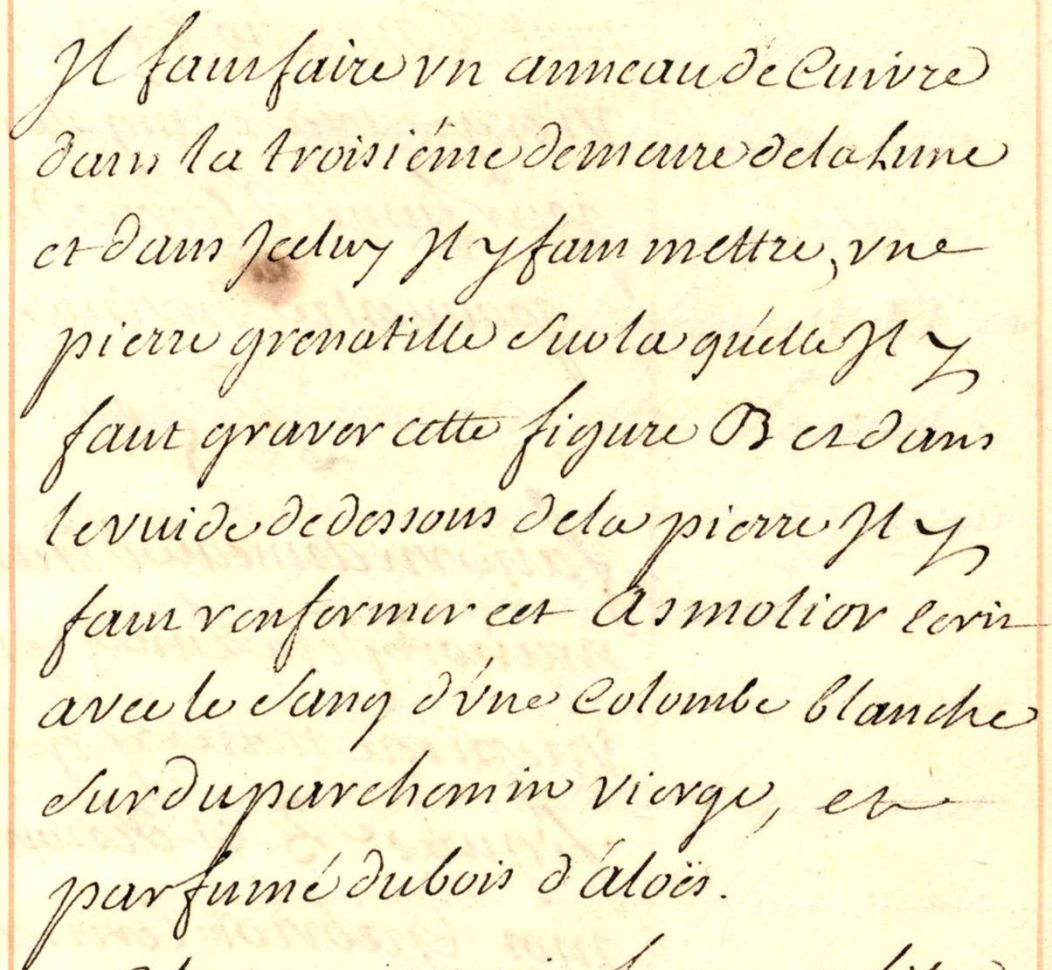 Jl faut faire vn anneau de Cuivre
dans la troisiéme demeure de la Lune
et dans Jceluy Jl y faut mettre, vne
pierre grenatille sur la quélle Jl y
faut graver cette figure B et dans
le vuide de dessous de la pierre Jl y
faut renfermer cet Asmolior écrit
avec le sang d'vne Colombe blanche
sur du parchemin vierge, et
parfumé du bois d'aloës.